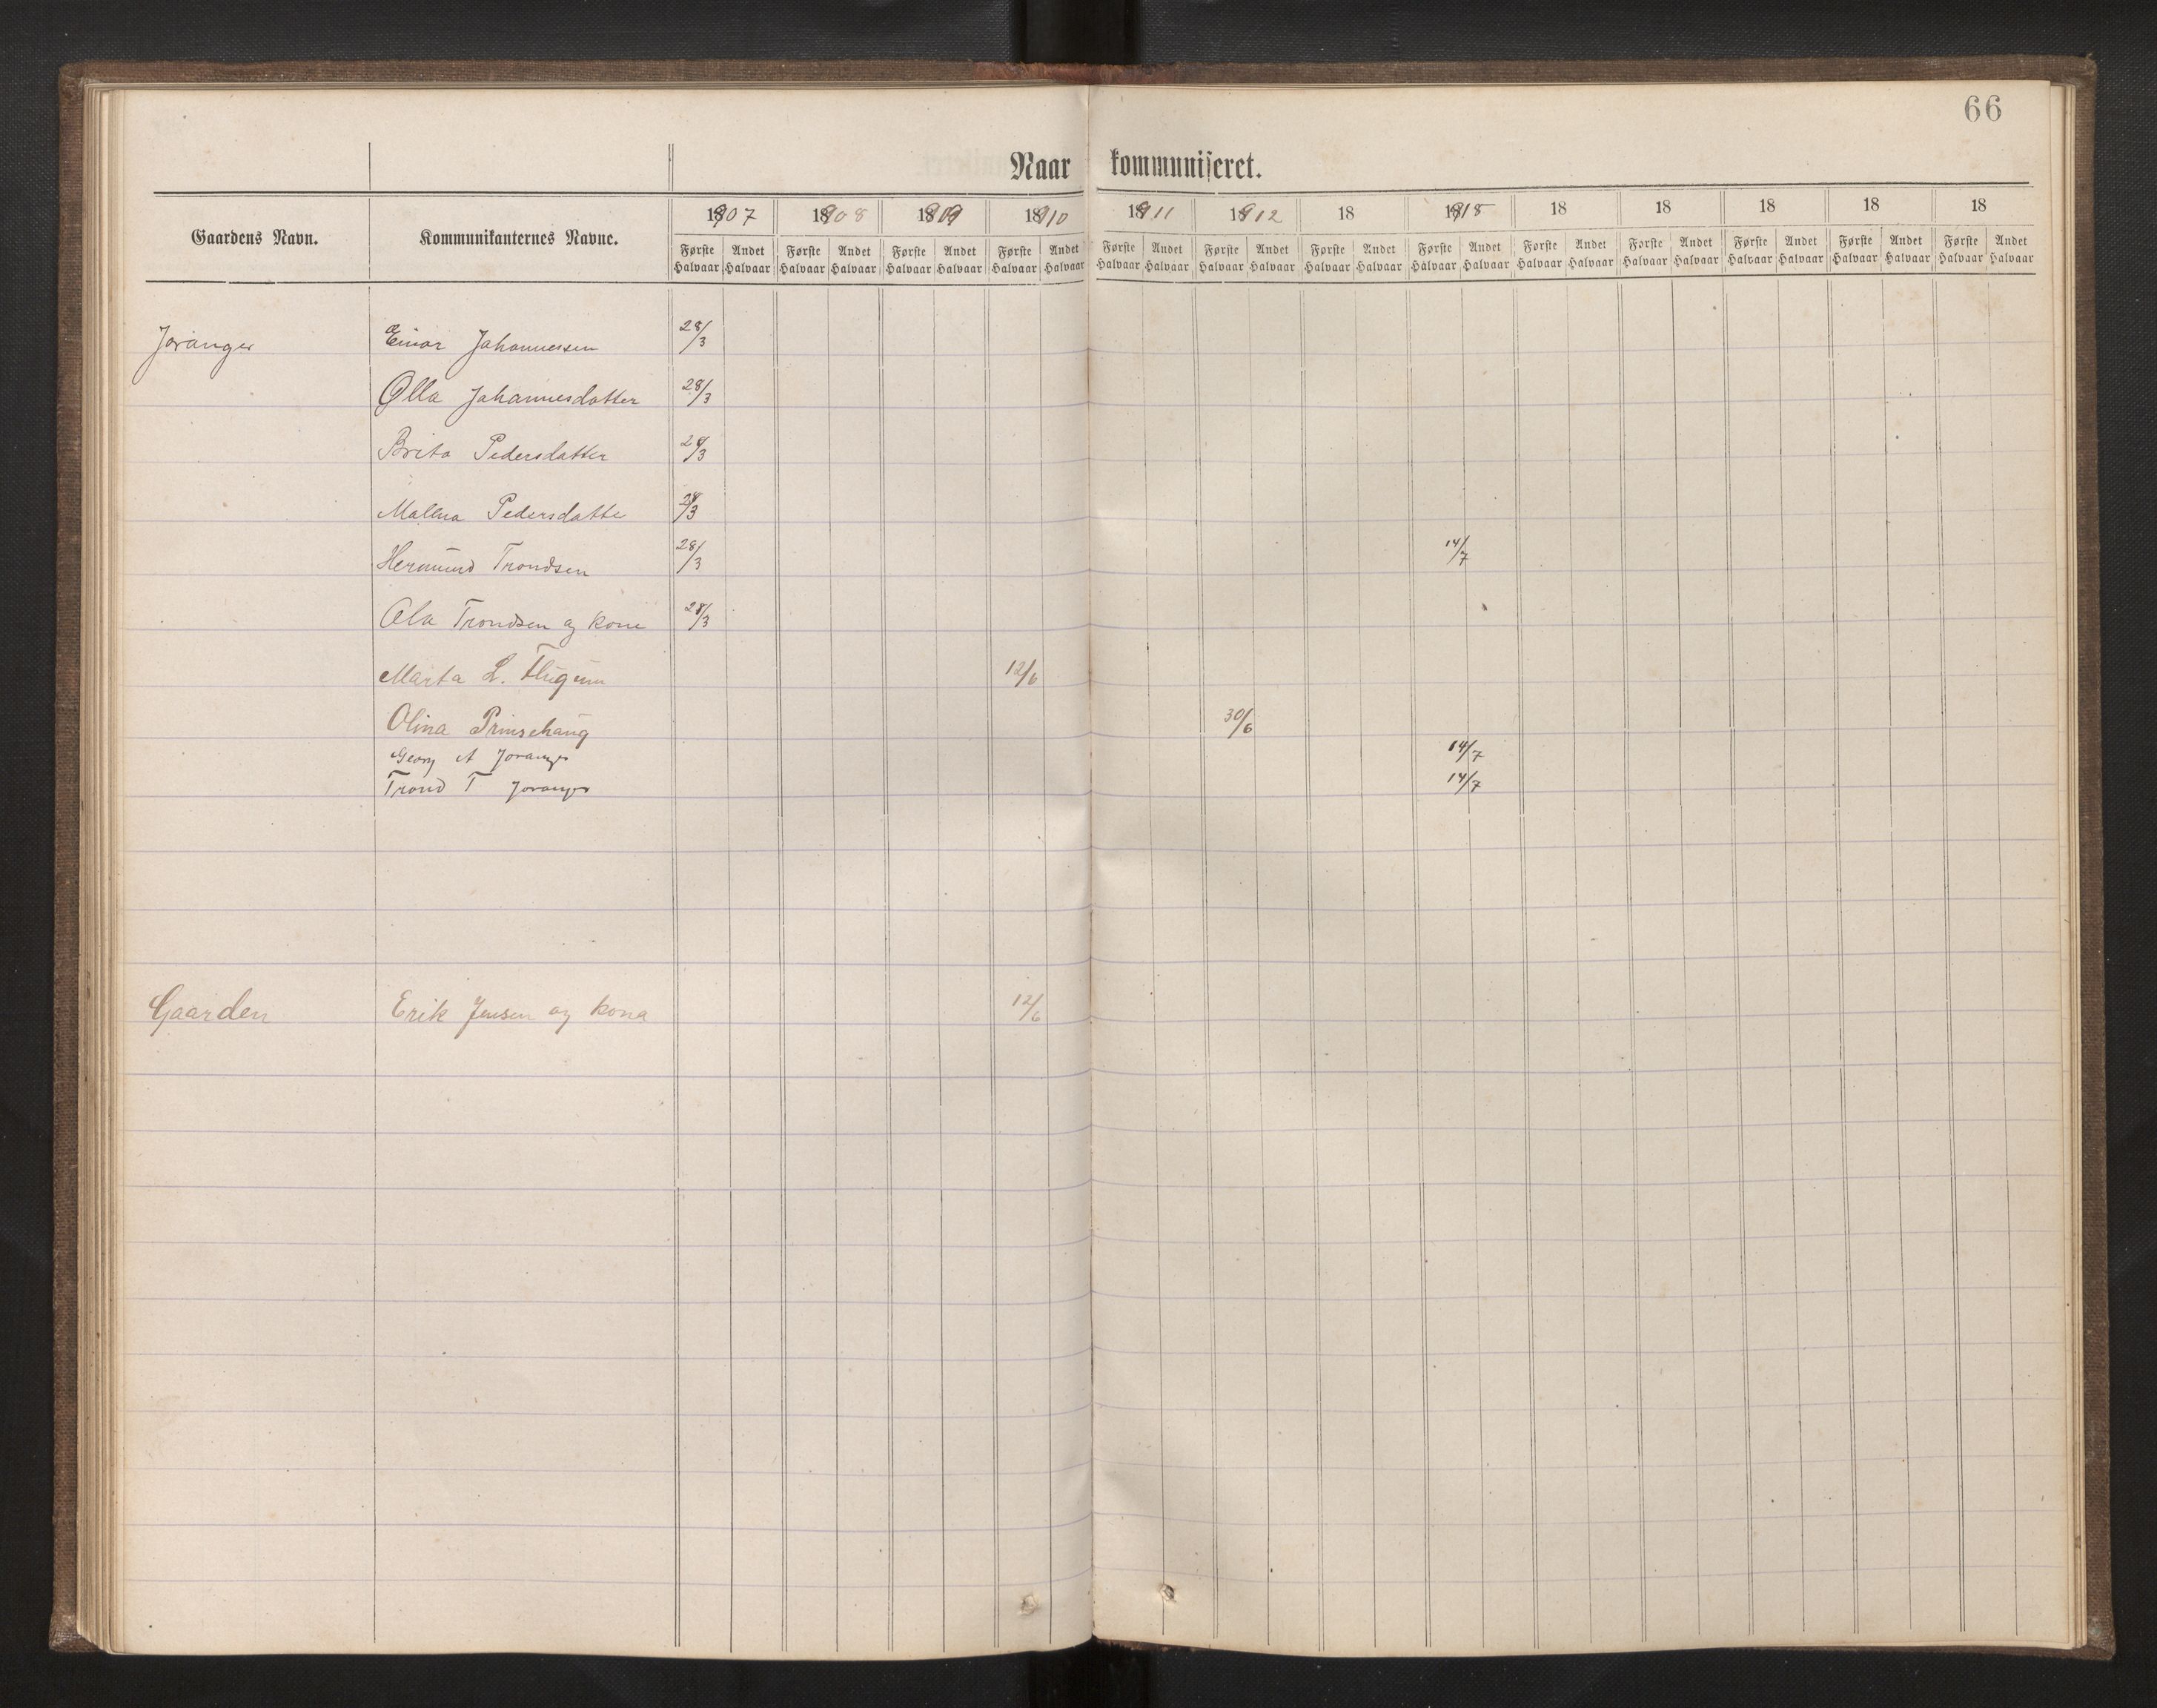 66
Naar kommuniseret.
Gaardens Navn. Kommunikanternes Navne. 1907 1908 1909 1910 1911 1912 18 1918 18 18 18 18 18
Første Halvaar Andet Halvaar Første Halvaar Andet Halvaar Første Halvaar Andet Halvaar Første Halvaar Andet Halvaar Første Halvaar Andet Halvaar Første Halvaar Andet Halvaar Første Halvaar Andet Halvaar Første Halvaar Andet Halvaar Første Halvaar Andet Halvaar Første Halvaar Andet Halvaar Første Halvaar Andet Halvaar Første Halvaar Andet Halvaar Første Halvaar Andet Halvaar
Joranger Einar Johannessen 28/3
Ølla Johannesdatter 28/3
Brita Pedersdatter 28/3
Malena Pedersdatte 28/3
Hermund Trondsen 28/3 14/7
Ola Trondsen og kone 28/3
Marta L. Flugum 12/6
Olina Prinsehaug 30/6
Georg A Joranger 14/7
Trond T Joranger 14/7
Gaarden Erik Jensen og kona 12/6